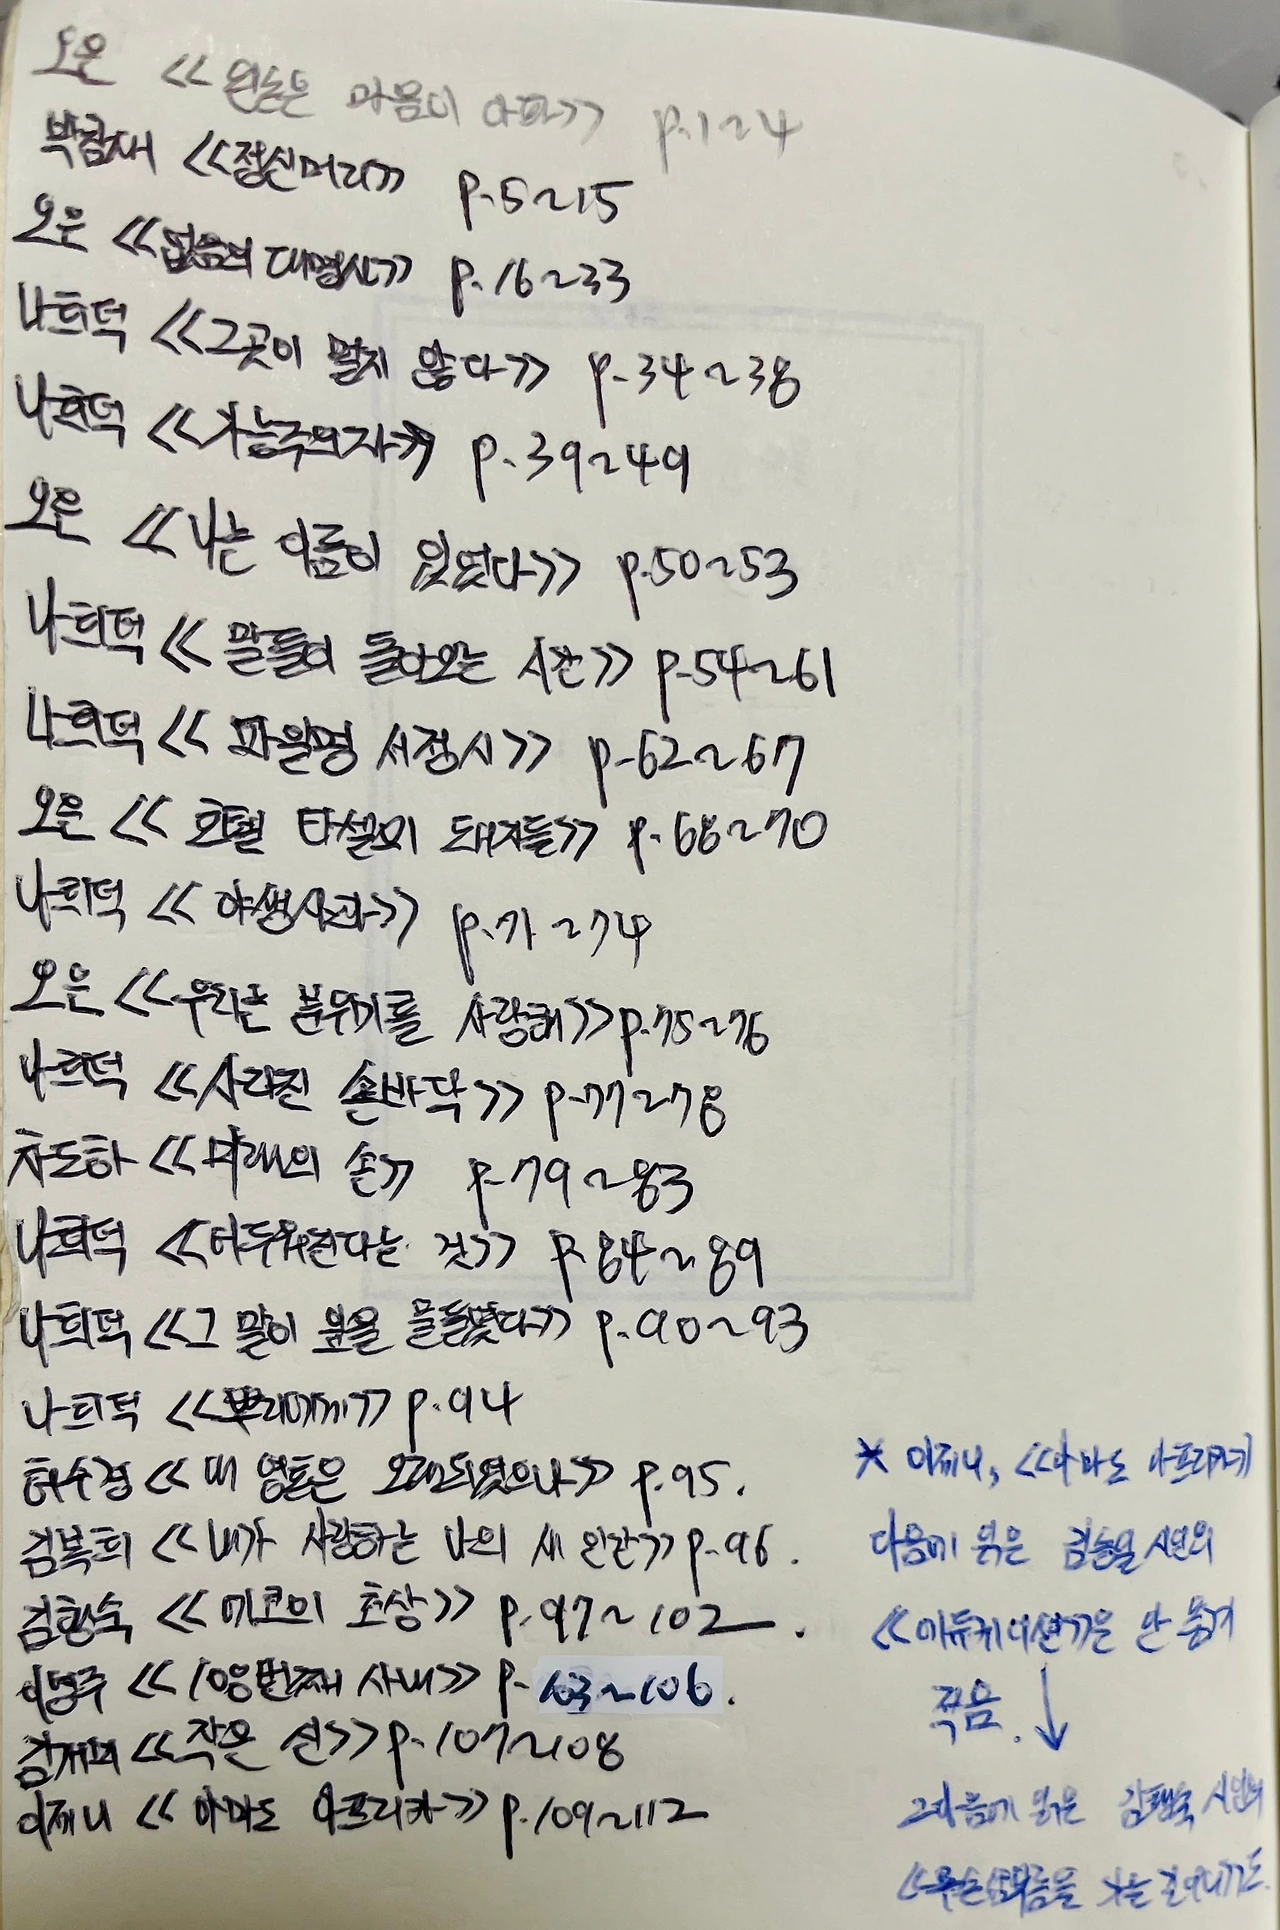 오은 <<왼손은 마음이 아파>> p.1~4
박참새 <<정신머리>> p.5~15
오은 <<없음의 대명사>> p.16~33
나희덕 <<그곳이 멀지 않다>> p.34~38
나희덕 <<가능주의자>> p.39~49
오은 <<나는 이름이 있었다>> p.50~53
나희덕 <<말들이 돌아오는 시간>> p.54~61
나희덕 <<파일명 서정시>> p.62~67
오은 <<호텔 타셀의 돼지들>> p.68~70
나희덕 <<야생사과>> p.71~74
오은 <<우리는 분위기를 사랑해>> p.75~76
나희덕 <<사라진 손바닥>> p.77~78
차도하 <<미래의 손>> p.79~83
나희덕 <<어두워진다는 것>> p.84~89
나희덕 <<그 말이 잎을 물들였다>> p.90~93
나희덕 <<뿌리에게>> p.94
허수경 <<내 영혼은 오래되었으나>> p.95.
김복희 <<내가 사랑하는 나의 새 인간>> p.96.
김행숙 <<에코의 초상>> p.97~102.
이영주 <<108번째 사내>> p.103~106.
강지혜 <<작은 신>> p.107~108
이제니 <<아마도 아프리카>> p.109~112
* 이제니, <<아마도 아프리카>>
다음에 읽은 김승일 시인의
<<에듀케이션>>은 안 옮겨
적음. ↓
그 다음에 읽은 김행숙 시인의